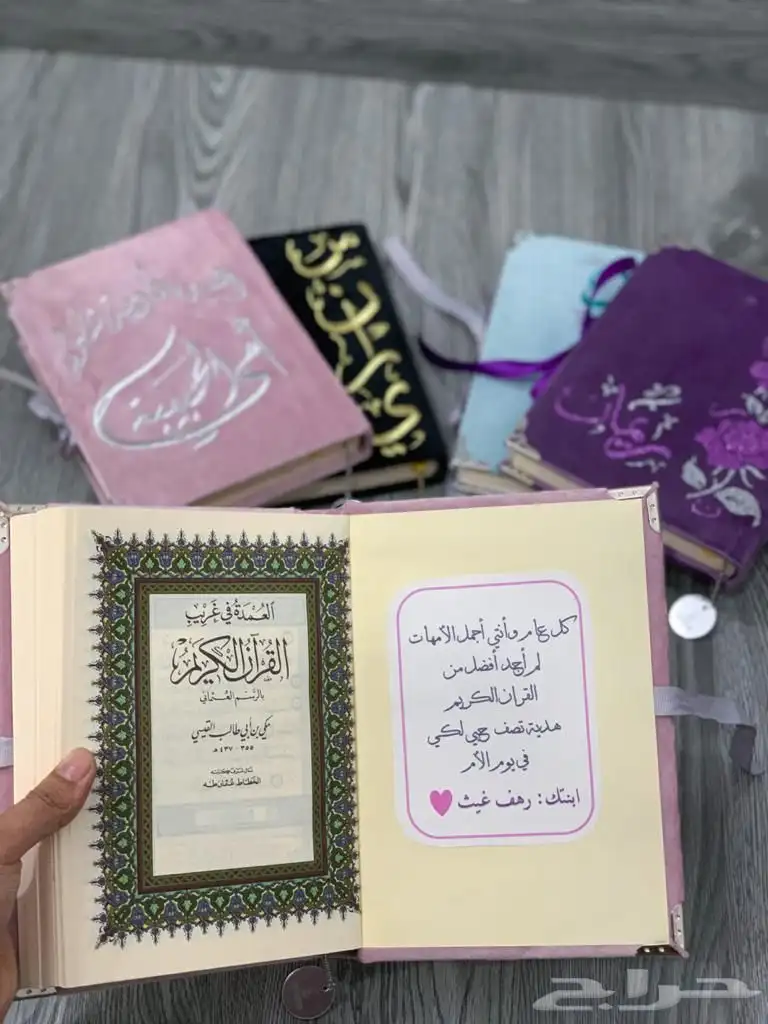 أمي الحبيبة
ريمان
العُمدَةُ في غَريبِ
القُرآنِ الكَريمِ
بالرَّسم العُثماني
مكي بن أبي طالب القيسي
٣٥٥ - ٤٣٧ هـ
الخطاط: عثمان طه
كل عام وأنتي أجمل الأمهات
لم أجد أفضل من
القران الكريم
هدية تصف حبي لكي
في يوم الأم
ابنتك: رهف غيث
حراج